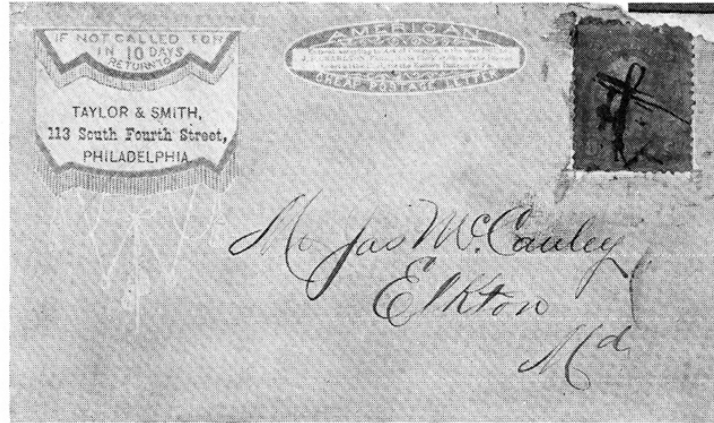 IF NOT CALLED FOR
IN 10 DAYS
RETURN TO
TAYLOR & SMITH,
113 South Fourth Street,
PHILADELPHIA
AMERICAN
CHEAP POSTAGE LETTER
Mr Jas McCauley
Elkton
Md